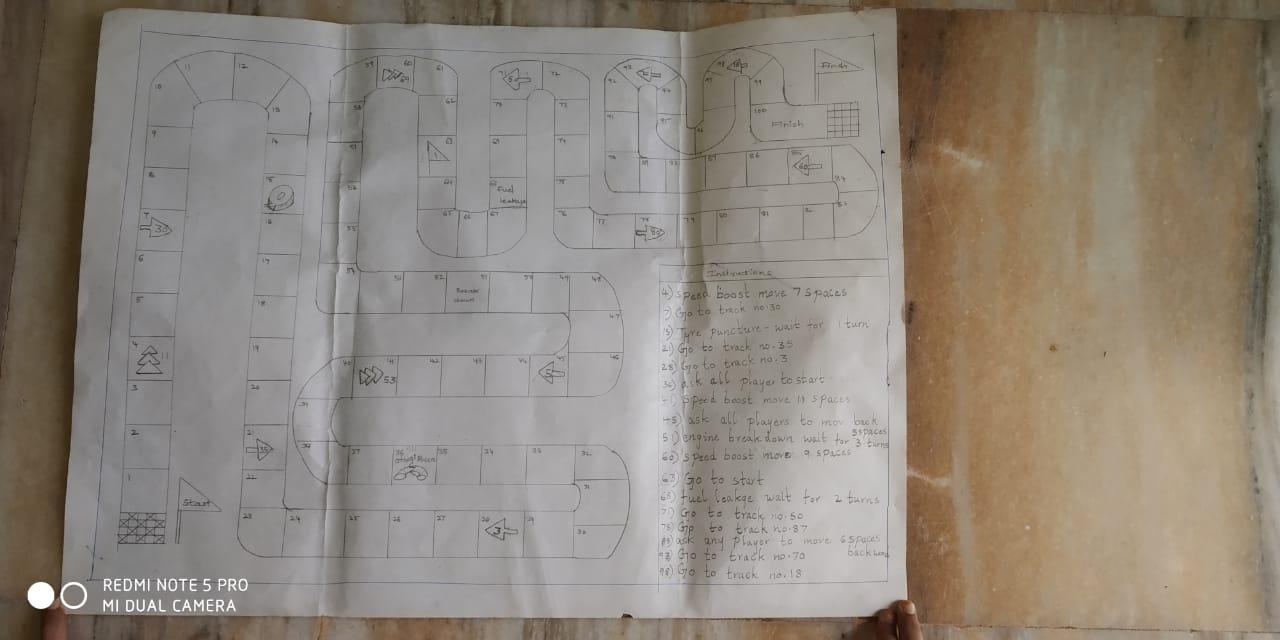 Start
1
2
3
4
11
5
6
7
30
8
9
10
11
12
13
14
15
16
17
18
19
20
21
35
22
23
24
25
26
27
28
3
29
30
31
32
33
34
35
36
37
38
39
40
41
53
42
43
44
45
46
47
48
49
50
51
52
53
54
55
56
57
58
59
60
69
61
62
63
64
65
66
67
68
Fuel
leakage
69
70
71
72
73
74
75
76
77
78
79
80
81
82
83
84
85
86
87
91
92
93
96
97
98
99
100
Finish
Finish
Instructions
4) Speed boost move 7 spaces
7) Go to track no.30
15) Tyre puncture - wait for 1 turn
21) Go to track no.35
28) Go to track no.3
36) ask all player to start
41) Speed boost move 11 spaces
45) ask all players to mov back
5 spaces
51) engine breakdown wait for 3 turns
60) Speed boost move 9 spaces
63) Go to start
68) fuel leakge wait for 2 turns
71) Go to track no.50
78) Go to track no.87
85) ask any player to move 6 spaces
backward
93) Go to track no.70
98) Go to track no.18
REDMI NOTE 5 PRO
MI DUAL CAMERA